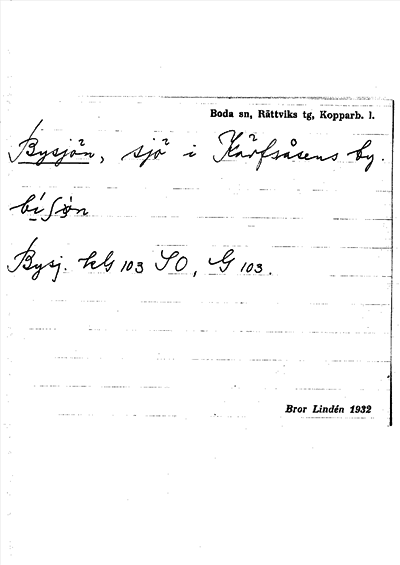 Boda sn, Rättviks tg, Kopparb. l.
Bysjön, sjö i Kärfsåsens by.
bíʃøn
Bysj. kG 103 SO, G 103.
Bror Lindén 1932